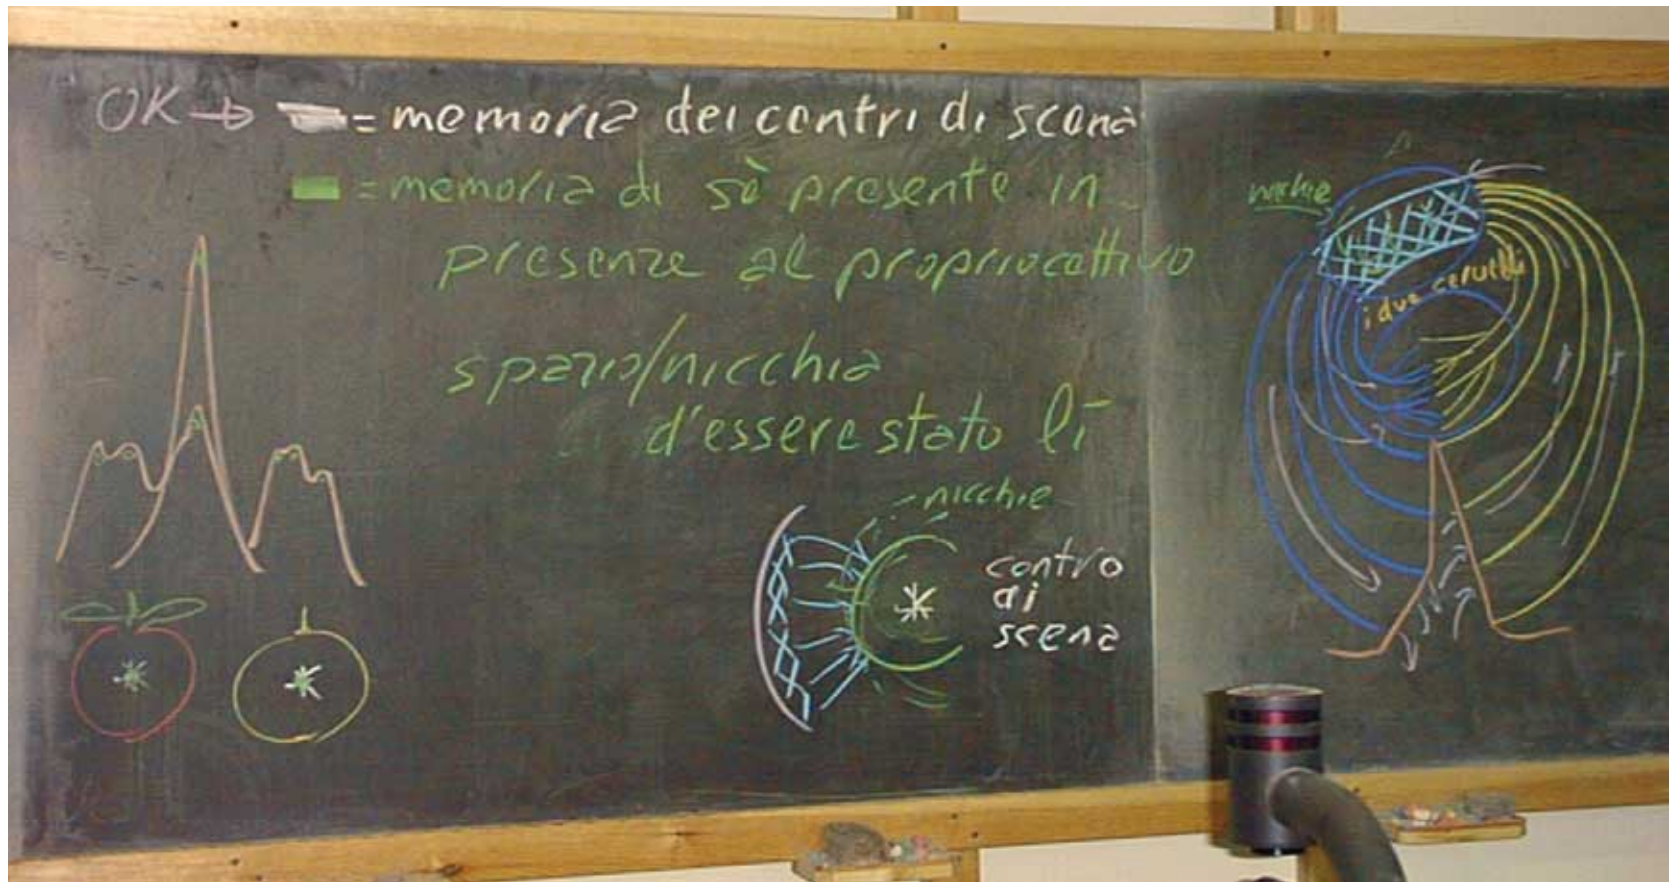 OK → = memoria dei centri di scena
= memoria di sè presente in
presenze al propriocettivo
spazio/nicchia
d'essere stato lì
nicchie
centro
di
scena
nicchie
i due cervelli